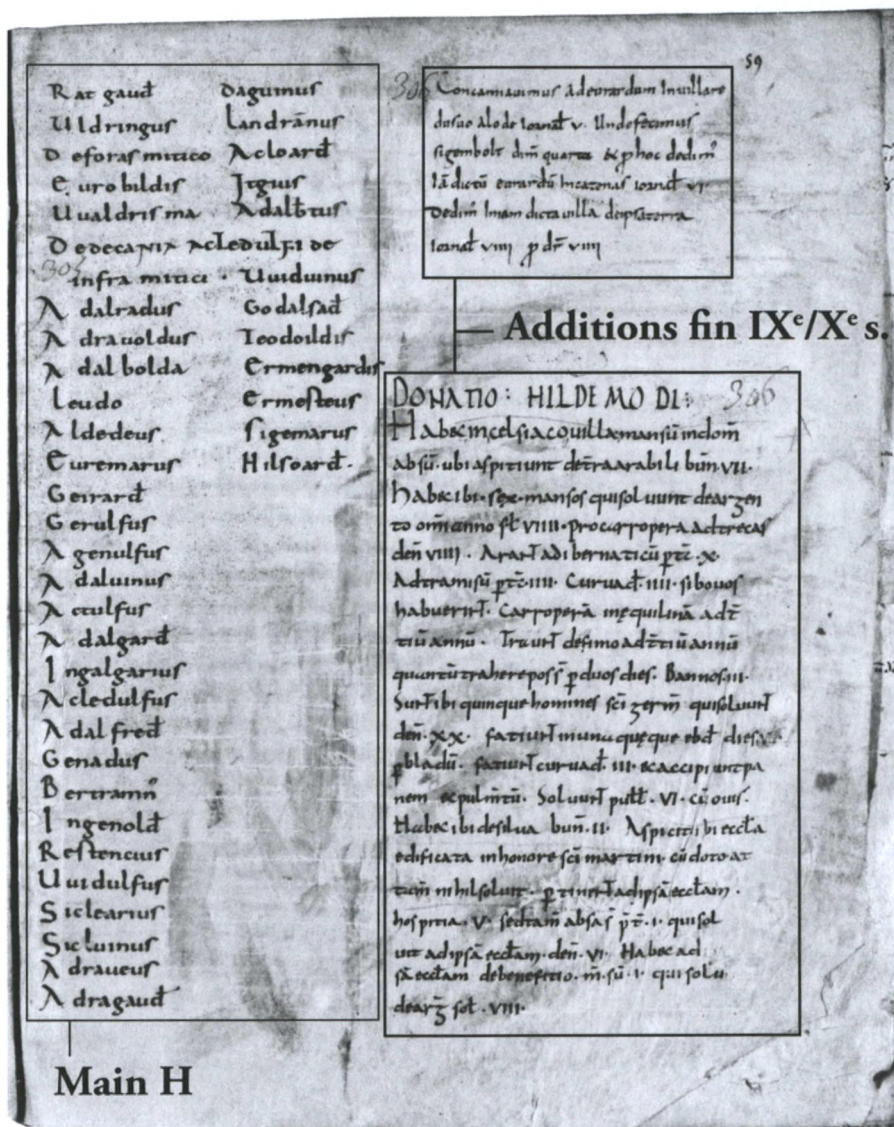 59
Rat gaud
Uldringus
Deforas mitico
Eurobildis
Uualdrisma
De decania acledulfi de
infra mitici
Adalradus
Adrauoldus
Adalbolda
Leudo
Aldedeus
Euremarus
Geirard
Gerulfus
Agenulfus
Adaluinus
Actulfus
Adalgard
Ingalgarius
Acledulfus
Adalfred
Genadus
Bertramn
Ingenold
Restencius
Uuidulfus
Siclearius
Sicluinus
Adraueus
Adragaud
Daguinus
Landrānus
Acloard
Itgius
Adalbtus
Uuiduinus
Godalsad
Teodoildis
Ermengardis
Ermesteus
Sigemarus
Hilsoard.
Main H
306
Concamiauimus ad eurardum In uillare
de suo alode Iornał v. Unde fecimus
sigembolt dim̄ quarta & p hoc dedim
Iā dictū eurardū In catenas Iornał vi
Dedim In iam dicta uilla de ipsa terra
Iornał viiii p dr̄ viiii
Additions fin IXᵉ/Xᵉ s.
DONATIO: HILDEMODI: 306
Habet in celsiaco uilla mansū indom̄
absū. ubi aspitiunt de t̄ra arabili bun̄. VII.
habet ibi. sex. mansos qui soluunt de argen
to om̄i anno sol VIIII. pro carropera ad trecas
den̄ VIIII. Arant ad ibernaticū ptc̄. X.
Ad tramisū ptc̄. IIII. Curuad. IIII. si bouos
habuerint. Carroperā in equilinā ad t̄
tiū annū. Traunt de fimo ad t̄tiū annū
quantū trahere poss̄ p duos dies. Bannos. III.
Sunt ibi quinque homines sc̄i germ̄ qui soluunt
den̄. XX. fatiunt in unaquęque ebd dies
p bladū. fatiunt curuad III. et accipiunt pa
nem et pulm̄tū. Soluunt pull. VI. cū ouis.
Habet ibi de silua bun̄. II. Aspicit ibi eccla
edificata in honore sc̄i martini. cū doto at
nihil soluit. ptinent ad ipsā eccłam.
hospitia. V. sed tam̄ absa s̄ p̄t̄. I. qui sol
uit ad ipsā eccłam. den̄. VI. Habet ad
sā eccłam de benefitio. m̄. sū. I. qui solu
de arḡ sol. VIII.